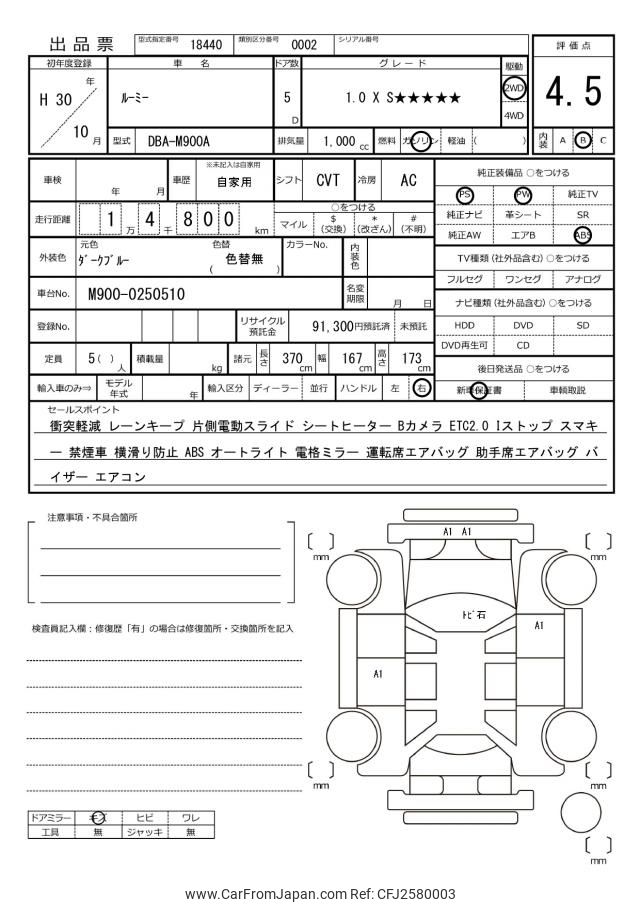 出品票
型式指定番号 18440 類別区分番号 0002 シリアル番号
評価点
4.5
初年度登録 車名 ドア数 グレード 駆動
H 30 年 10 月
ルーミー
5 D
1.0 X S★★★★★
2WD
4WD
型式 DBA-M900A 排気量 1,000 cc 燃料 ガソリン 軽油 ( )
内装 A B C
車検 年 月 車歴 ※未記入は自家用 自家用 シフト CVT 冷房 AC
走行距離 1 万 4 千 8 0 0 km
○をつける
マイル $(交換) *(改ざん) #(不明)
外装色 元色 ダークブルー 色替 ( 色替無 ) カラーNo. 内装色
車台No. M900-0250510 名変期限 月 日
登録No. リサイクル預託金 91,300円預託済 未預託
定員 5( ) 人 積載量 kg 諸元 長さ 370 cm 幅 167 cm 高さ 173 cm
輸入車のみ⇒ モデル年式 年 輸入区分 ディーラー 並行 ハンドル 左 右
純正装備品 ○をつける
PS PW 純正TV
純正ナビ 革シート SR
純正AW エアB ABS
TV種類 (社外品含む) ○をつける
フルセグ ワンセグ アナログ
ナビ種類 (社外品含む) ○をつける
HDD DVD SD
DVD再生可 CD
後日発送品 ○をつける
新車保証書 車輌取説
セールスポイント
衝突軽減 レーンキープ 片側電動スライド シートヒーター Bカメラ ETC2.0 Iストップ スマキ
ー 禁煙車 横滑り防止 ABS オートライト 電格ミラー 運転席エアバッグ 助手席エアバッグ バ
イザー エアコン
注意事項・不具合箇所
検査員記入欄：修復歴「有」の場合は修復箇所・交換箇所を記入
ドアミラー キズ ヒビ ワレ
工具 無 ジャッキ 無
A1 A1
mm
mm
トビ石
A1
A1
mm
mm
mm
www.CarFromJapan.com Ref: CFJ2580003